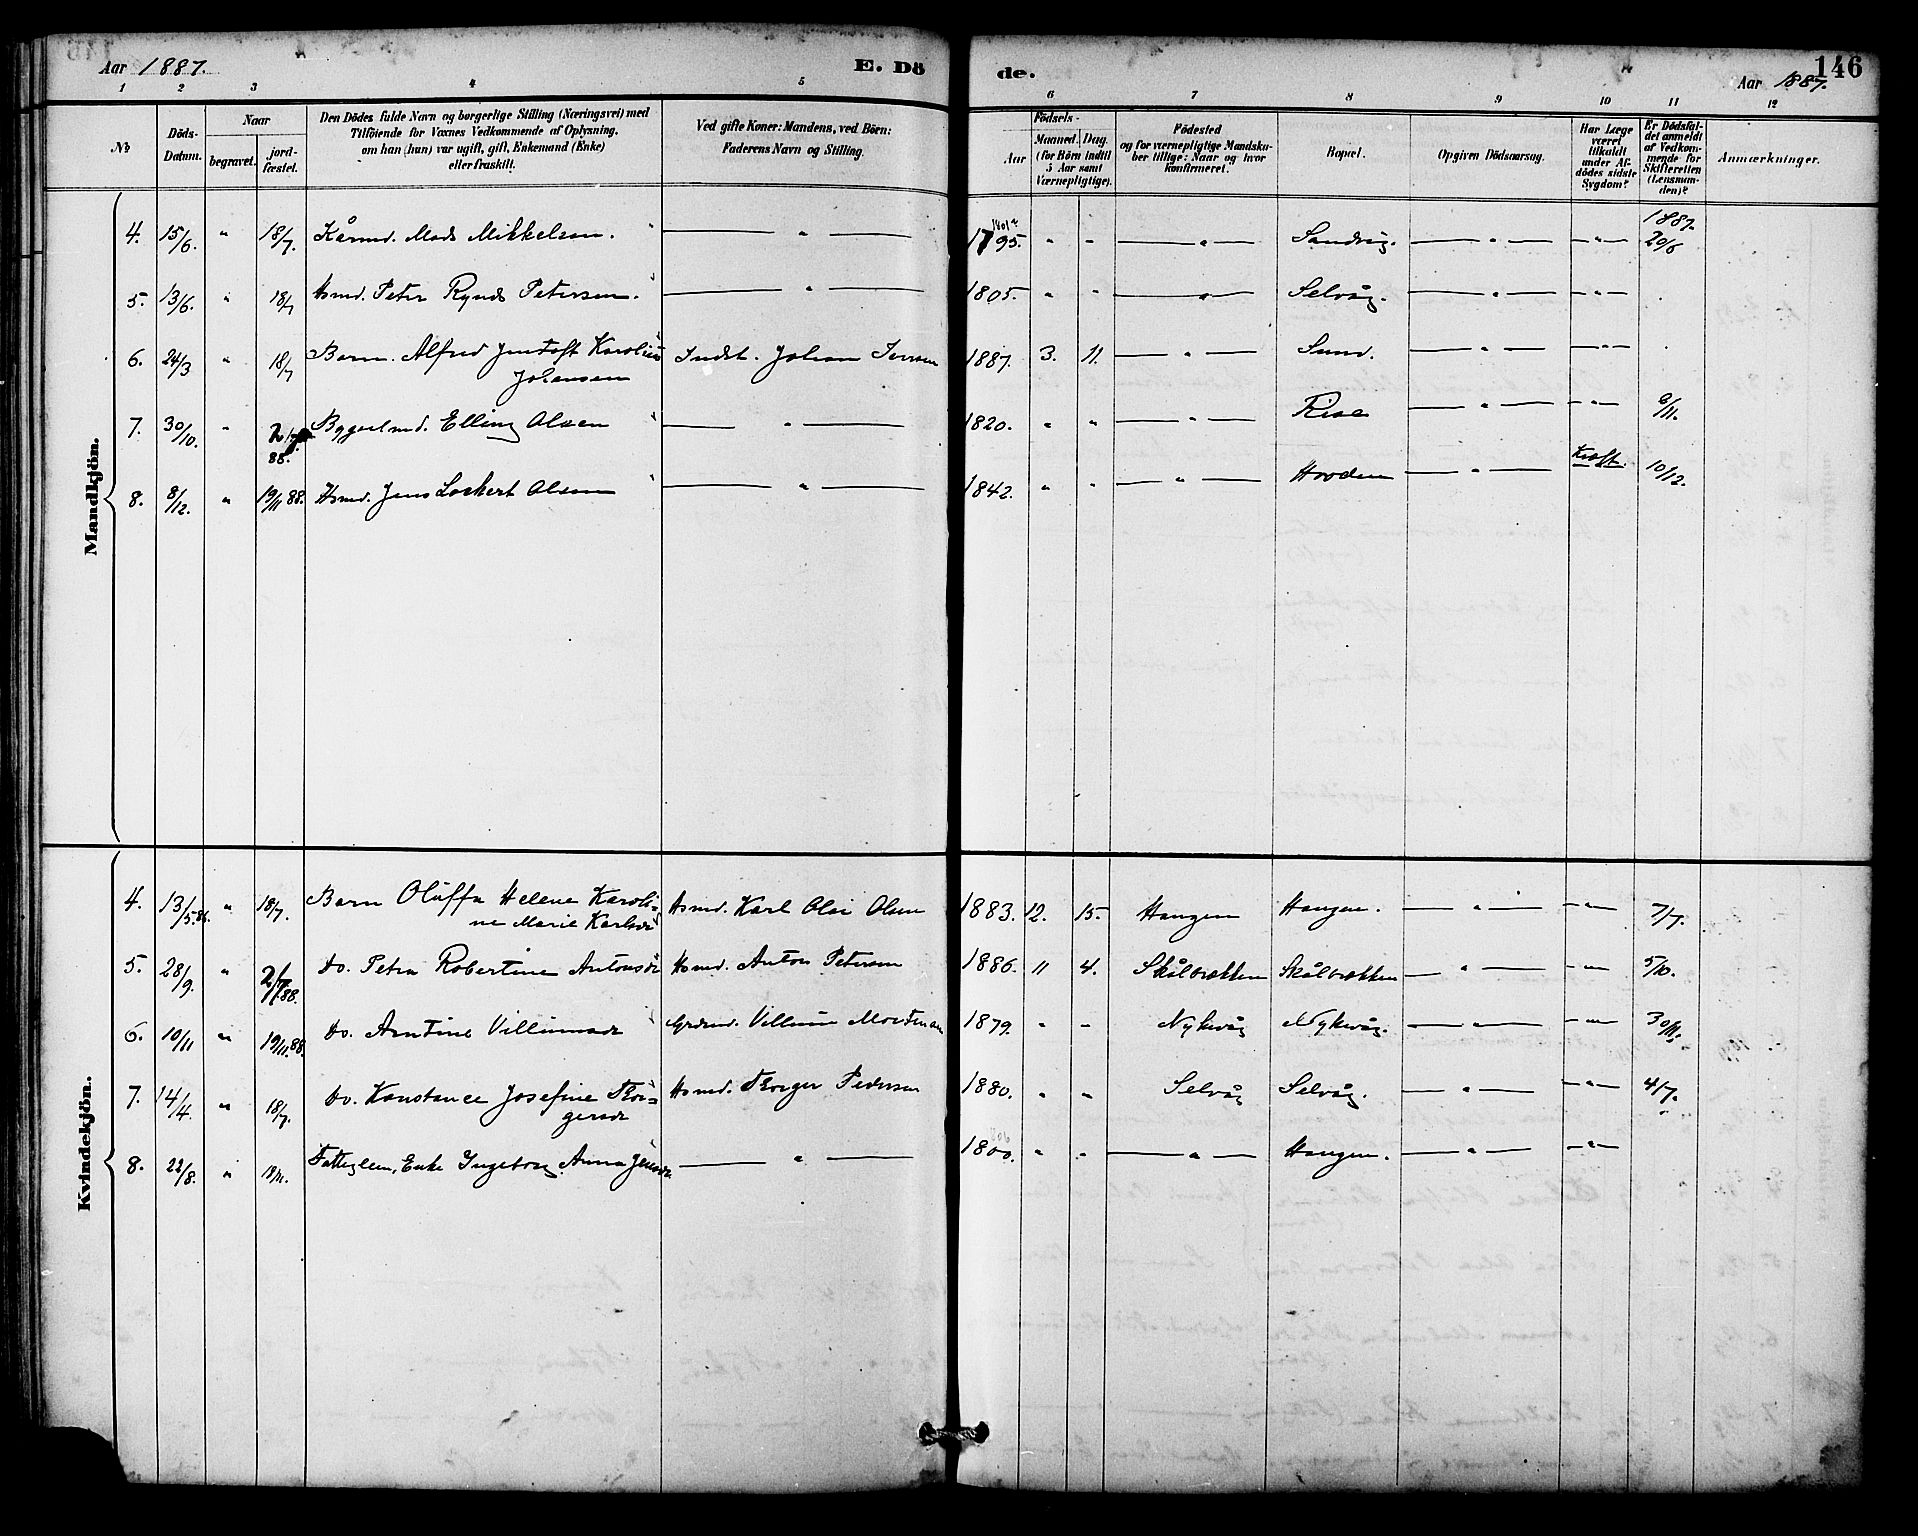 Aar 1887.
E. Dö
de.
146
Aar 1887.
1 2 3 4 5 6 7 8 9 10 11 12
No
Döds-Datum.
Naar
begravet.
jord-fæstet.
Den Dödes fulde Navn og borgerlige Stilling (Næringsvei) med
Tilföiende for Voxnes Vedkommende af Oplysning,
om han (hun) var ugift, gift, Enkemand (Enke)
eller fraskilt.
Ved gifte Koner: Mandens, ved Börn:
Faderens Navn og Stilling.
Födsels-
Aar
Maaned. Dag.
(for Börn indtil
5 Aar samt
Værnepligtige).
Födested
og for værnepligtige Mandskaber tillige: Naar og hvor
konfirmeret.
Bopæl.
Opgiven Dödsaarsag.
Har Læge
været
tilkaldt
under Afdödes sidste
Sygdom?
Er Dödsfaldet anmeldt
af Vedkommende for
Skifteretten
(Lensmanden)?
Anmærkninger.
Mandkjön.
4. 15/6. " 18/7. Kårmd. Mads Mikkelsen. — " — 1795. " - — " — Sandvig. — " — - " - 1887. 20/6
5. 13/6. " 18/7 Hsmd. Peter Rynds Petersen. — " — 1805. " - — " — Selvåg. — " — - " -
6. 24/3 " 18/7 Barn. Alfred Jentoft Karolius Indst. Johan Iversen 1887. 3. 11. — " — Sund. — " — - " -
Johansen
7. 30/10. " 88. Bygselmd. Elling Olsen — " — 1820. " " — " — Risa — " — - " - /11.
8. 8/12. " 19/11 88. Hsmd. Jens Lockert Olsen — " — 1842. " " — " — Hovden — " — Kræft. 10/12.
Kvindekjön.
4. 13/5.86. " 18/7. Barn Oluffa Helene Karoli- Hsmd. Karl Olai Olsen 1883. 12. 15. Haugen Haugen. — " — - " - 7/7.
ne Marie Karlsdr
5. 28/9. " 2/7 88. do. Petra Robertine Antonsdr Hsmd. Anton Petersen 1886. 11 4. Skålbrekken Skålbrekken — " — - " - 5/10.
6. 10/11 " 19/11.88. do. Arntine Villumsdr Grdmd. Villum Mortensen 1879. " - Nykvåg Nykvåg. — " — - " - 30/11.
7. 14/4. " 18/7. do. Konstance Josefine Thor= Hsmd. Thorger Pedersen 1880. " " Selvåg Selvåg. — " — - " - 4/7.
gersdr
8. 22/8. " Fattiglem, Enke Ingeborg Anna Jensdr — " — 1800. " " — " — Haugen. — " — - " -